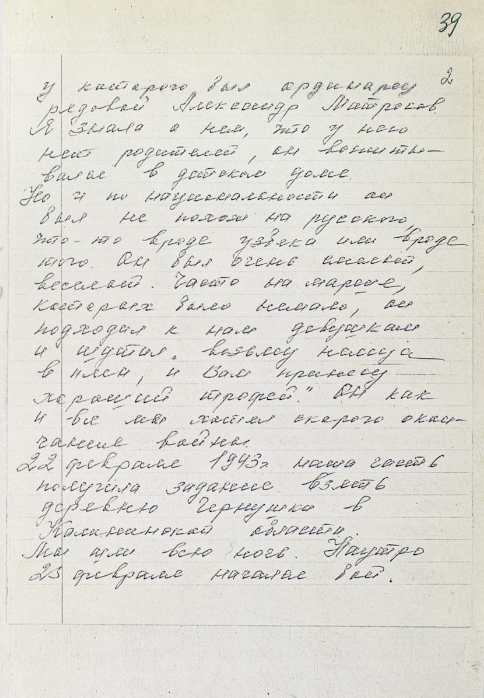 39
2
у которого был ординарец
рядовой Александр Матросов.
Я знала о нем, что у него
нет родителей, он воспиты-
вался в детском доме.
Но и по национальности он
был не похож на русского,
что-то вроде узбека или вроде
того. Он был очень смелый,
веселый. Часто на марше,
которых было немало, он
подходил к нам девушкам
и шутил „возьму немца
в плен, и Вам принесу
хороший трофей." Он как
и все мы хотел скорого окон-
чания войны.
22 февраля 1943г наша часть
получила задание взять
деревню Чернушки в
Калининской области.
Мы шли всю ночь. Наутро
23 февраля начался бой.